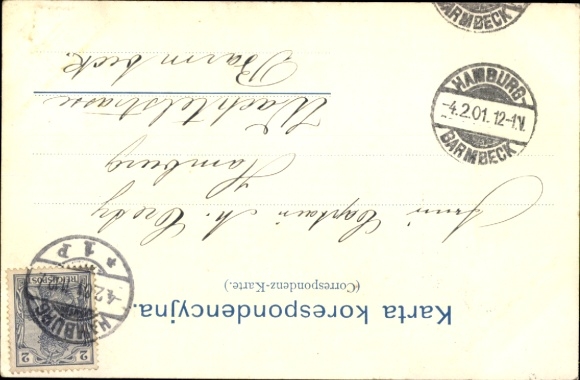 Karta korespondencyjna.
(Correspondenz-Karte.)
Captain M. Creby
Hamburg
Wachtelstrasse
Barmbeck.
HAMBURG
-4.2.01.12-1N.
BARMBECK
BARMBECK
HAMBURG
* 1 P
REICHSPOST
2
2